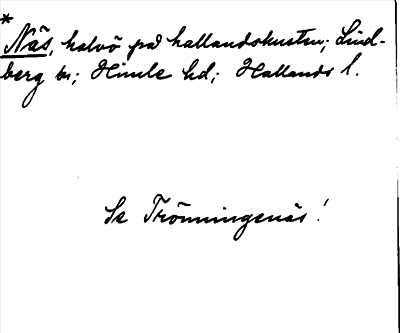 *
Näs, halvö på hallandskusten; Lind-
berg sn; Himle hd; Hallands l.
Se Trönningenäs!